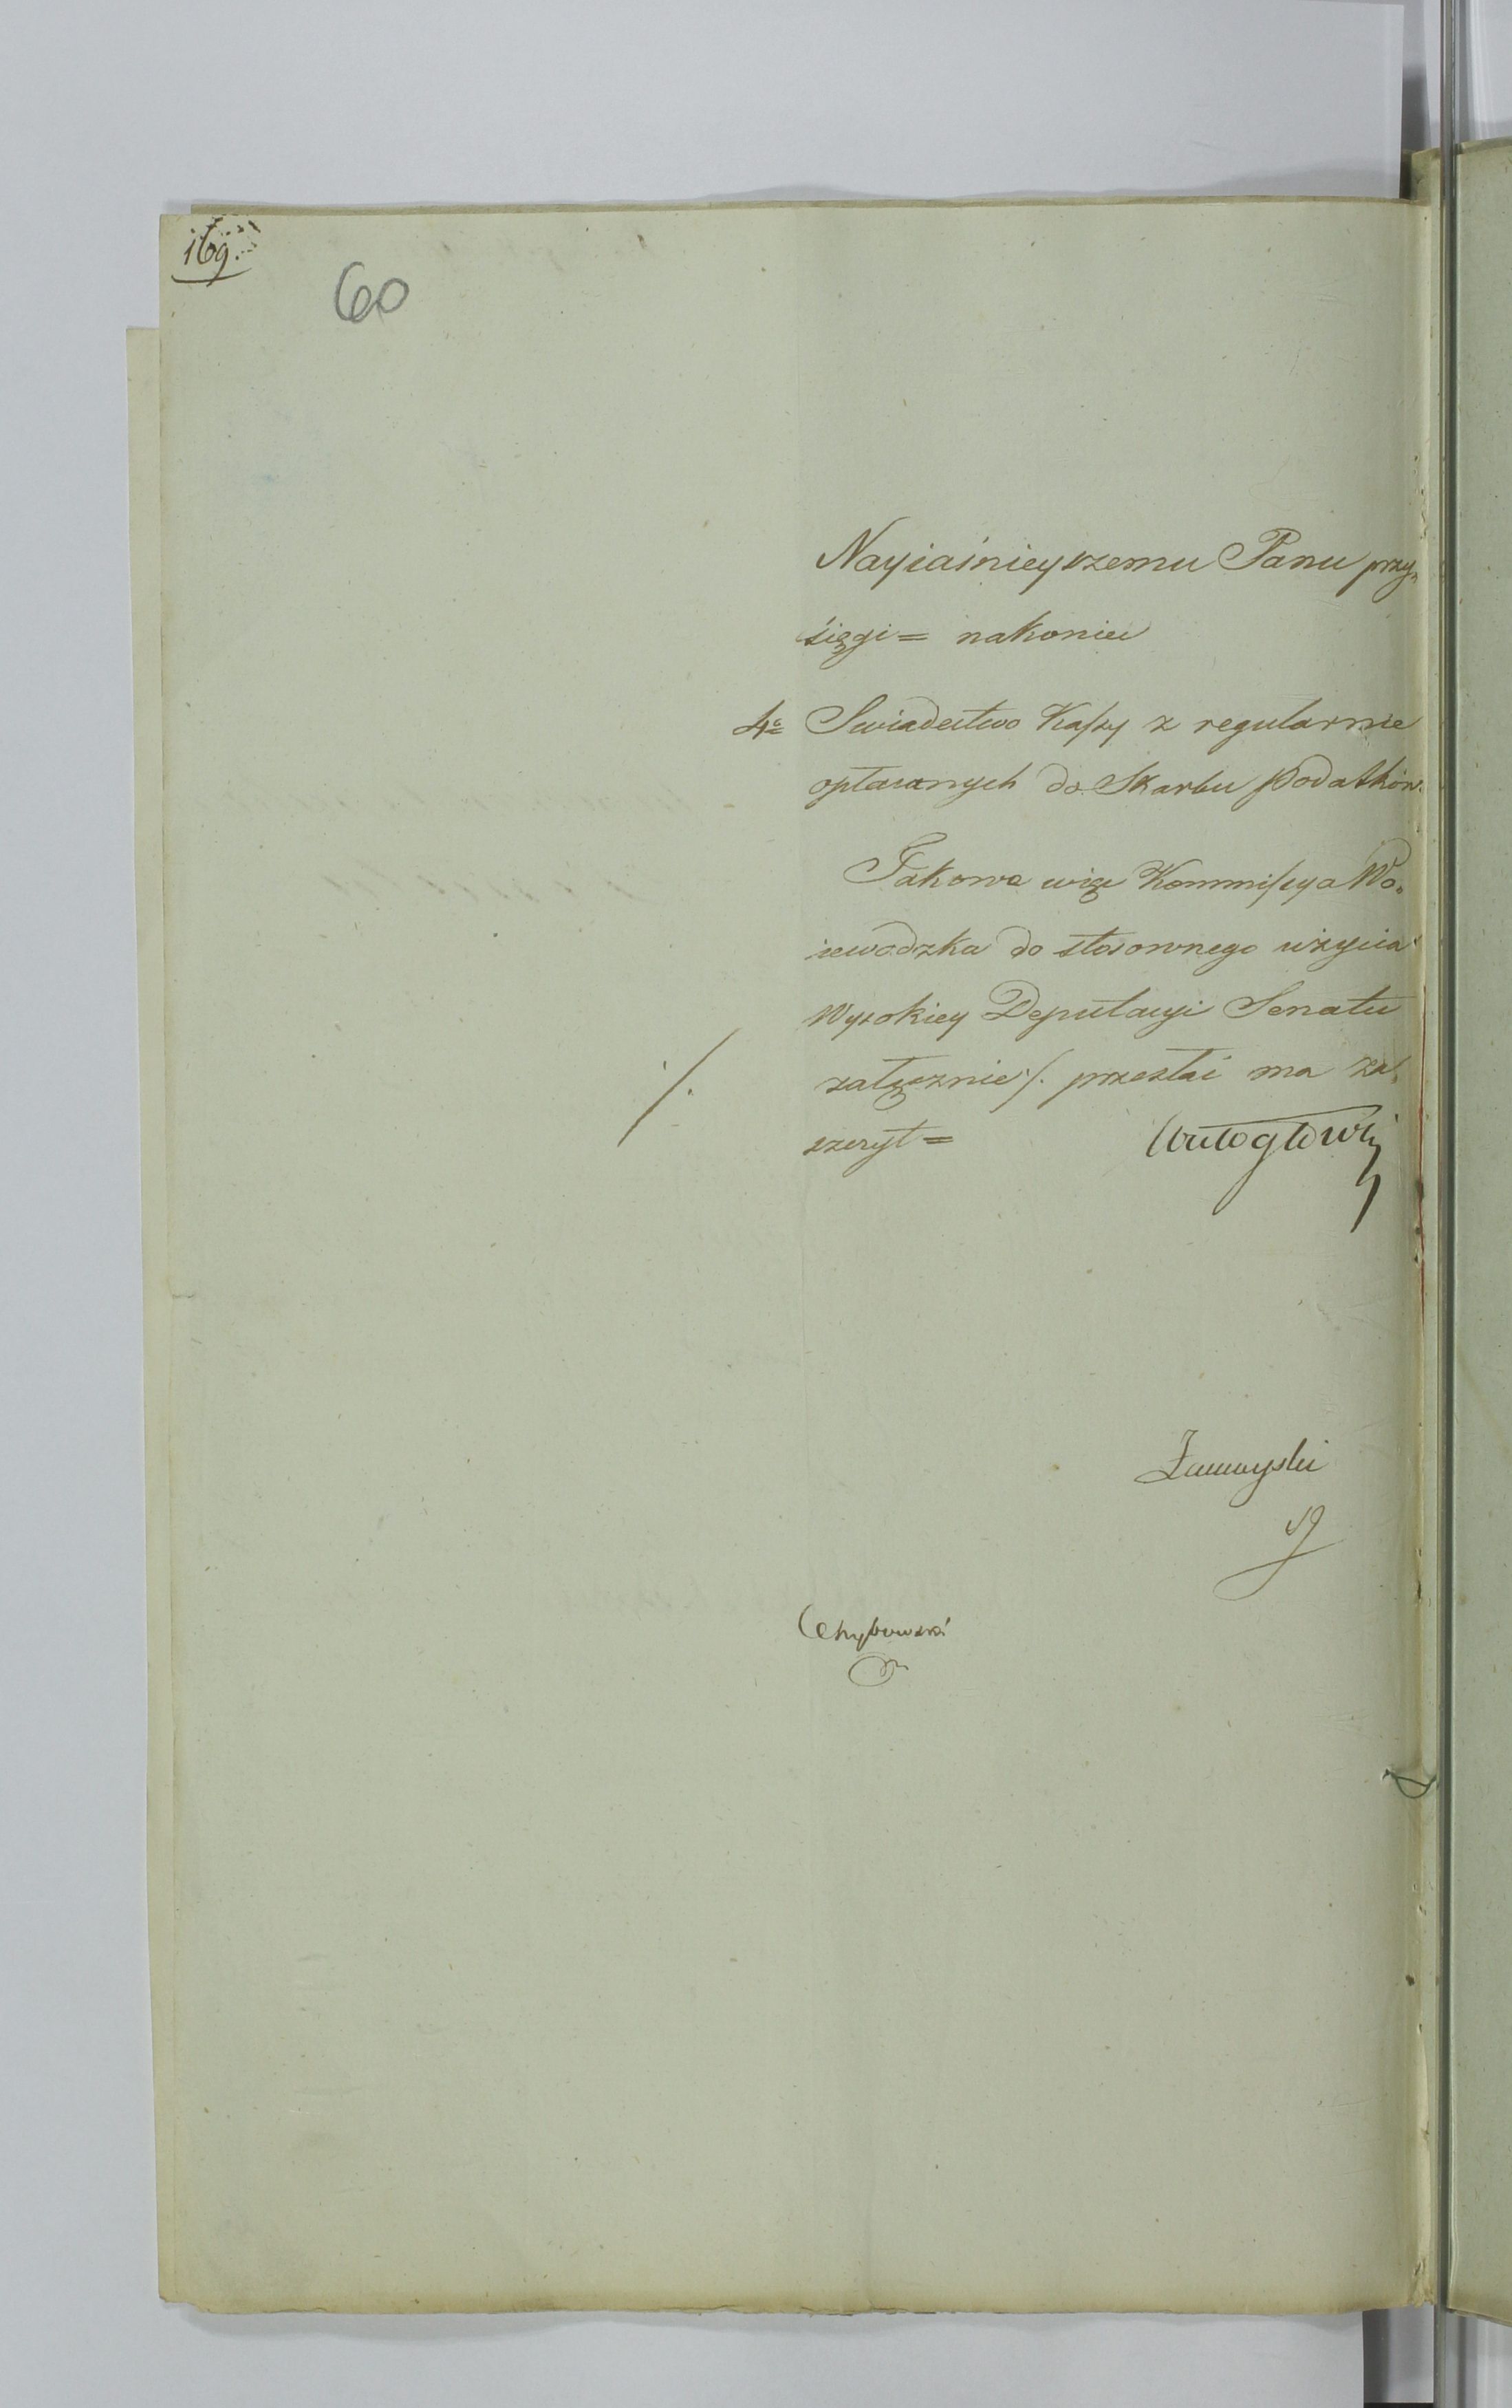 169.
60
Nayiaśnieyszemu Panu przy„
sięgi = nakoniec
4o Swiadectwo Kaſsy z regularnie
opłacanych do Skarbu podatków.
Takowe więc Kommiſsya Wo„
iewodzka do stosownego użycia
Wysokiey Deputacyi Senatu
załącznie ·/. przesłać ma za„
szczyt =
·/.
Wielogłowski
Chybowski